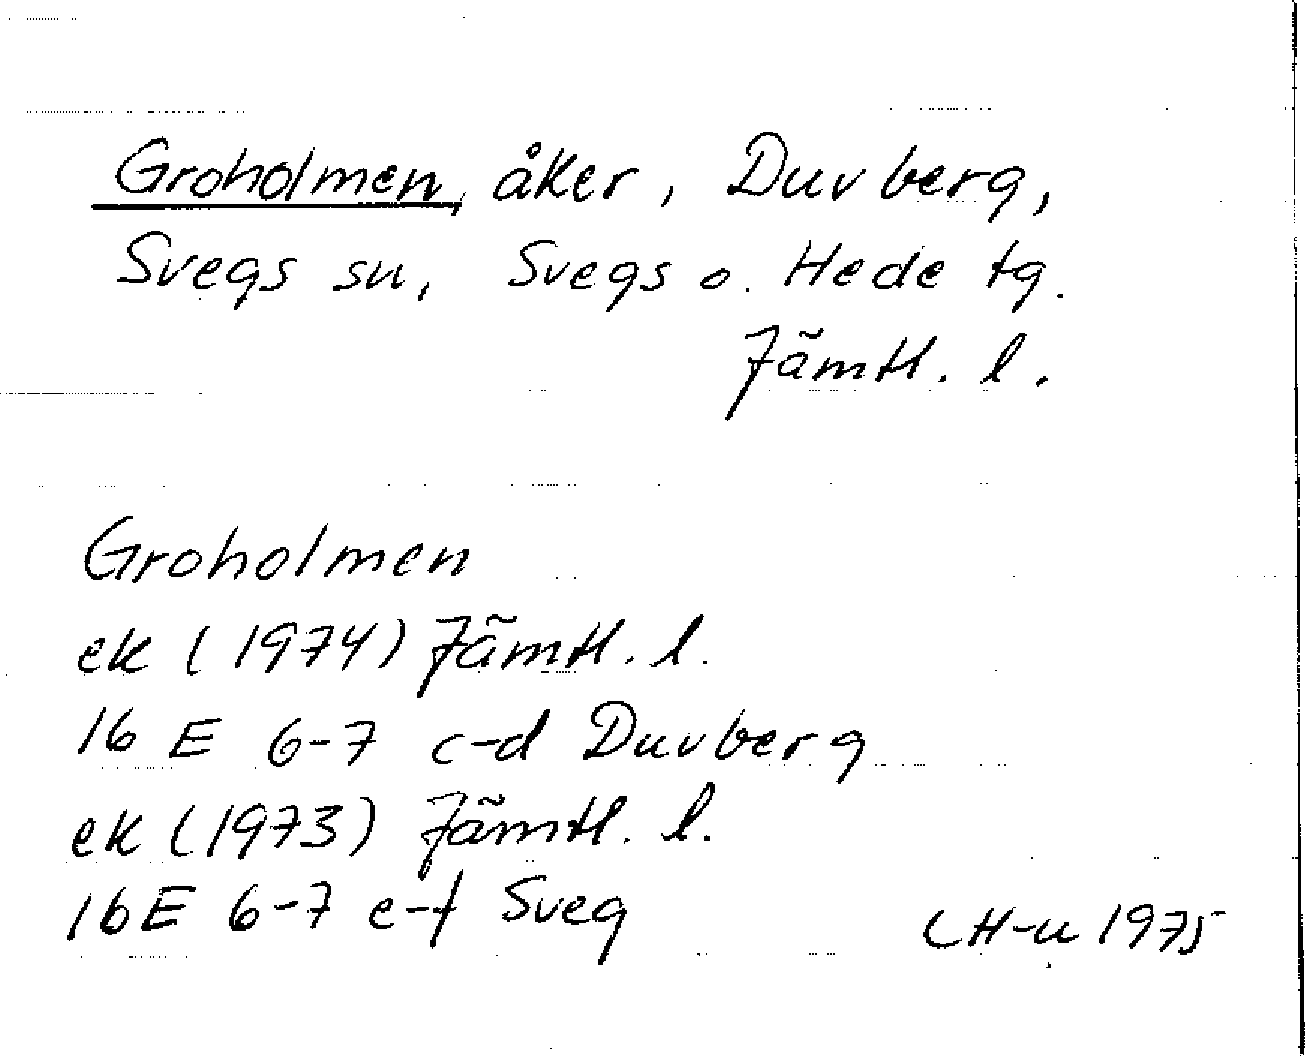 Groholmen, åker, Duvberg,
Svegs sn, Svegs o. Hede tg.
Jämtl. l.
Groholmen
ek (1974) Jämtl. l.
16 E 6-7 c-d Duvberg
ek (1973) Jämtl. l.
16E 6-7 e-f Sveg
CH-n 1975